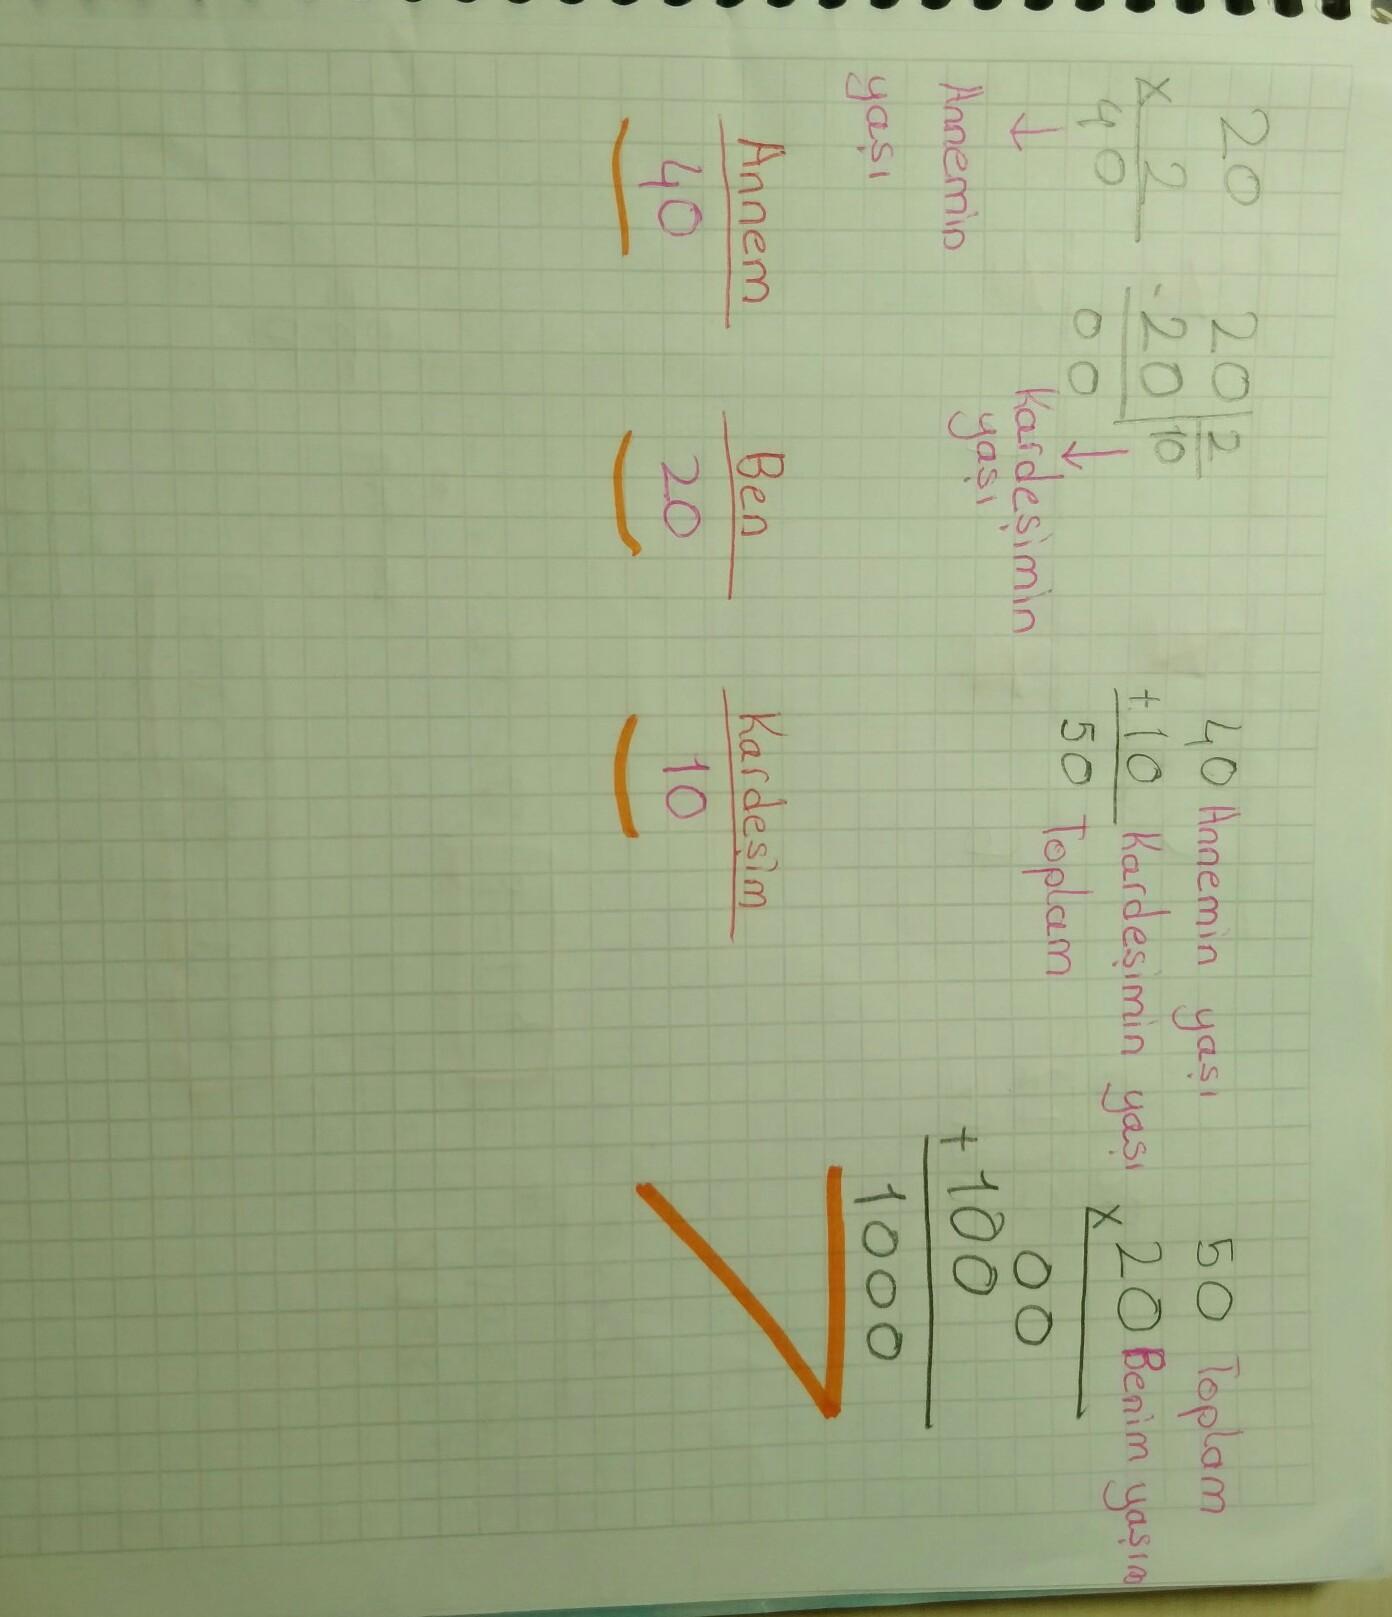 20
x 2
40
↓
Annemin
yaşı
20 | 2
-20 | 10
00
↓
Kardeşimin
yaşı
40 Annemin yaşı
+ 10 Kardeşimin yaşı
50 Toplam
50 Toplam
x 20 Benim yaşım
00
+ 100
1000
Annem
40
Ben
20
Kardeşim
10